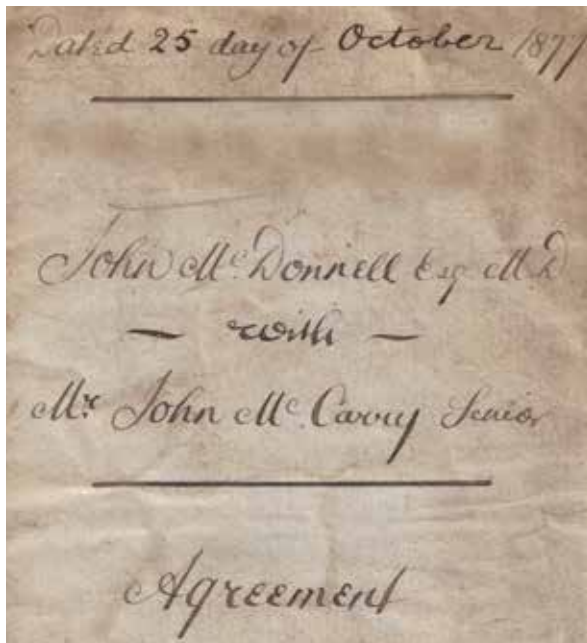 Dated 25 day of October 1877
John Mc. Donnell Esq M.D
— with —
Mr. John Mc. Carry Senior
Agreement